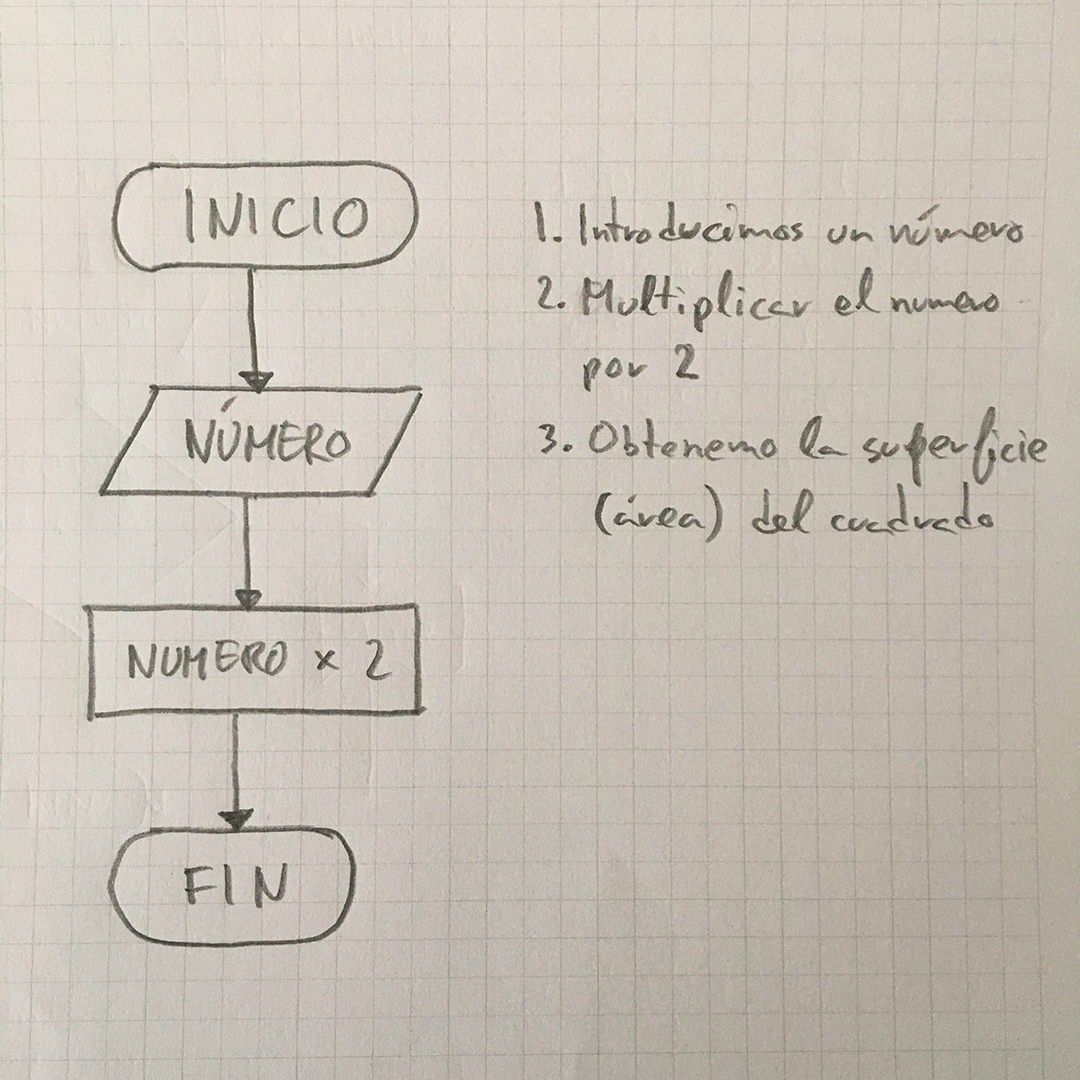 INICIO
NÚMERO
NUMERO x 2
FIN
1. Introducimos un número
2. Multiplicar el numero
por 2
3. Obtenemo la superficie
(área) del cuadrado